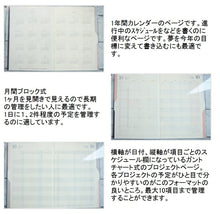 1年間カレンダーのページです。進
行中のスケジュールなどを書くのに
便利なページです。夢を今年の目
標に変えて書き込むにも最適で
す。
月間ブロック式
1ヶ月を見開きで見えるので長期
の管理をしたい人に最適です。
1日に1、2件程度の予定を管理す
るのに適しています。
横軸が日付、縦軸が項目ごとのス
ケジュール欄になっているガント
チャート式のプロジェクトページ。
各プロジェクトの予定がひと目で分
かりやすいのがこのフォーマットの
良いところ。最大10項目まで管理
することができます。